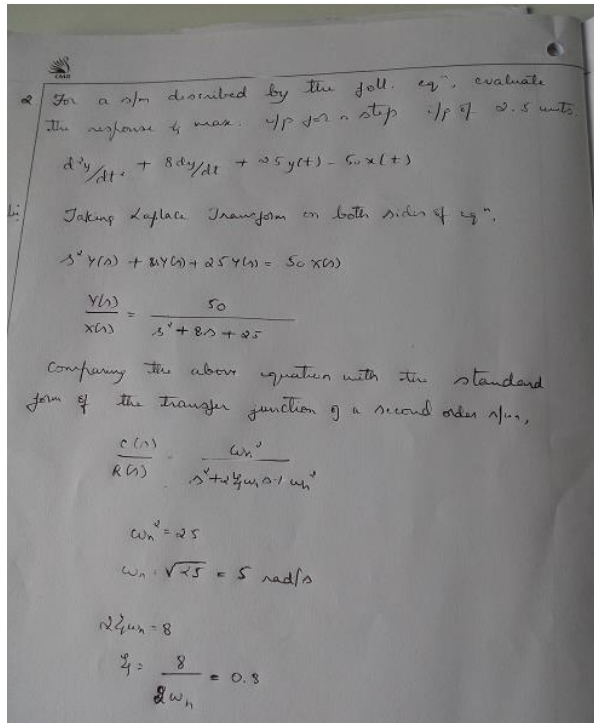 CMR
2 For a s/m described by the foll. eqⁿ, evaluate
the response & max. o/p for a step i/p of 2.5 units.
d²y/dt² + 8dy/dt + 25y(t) = 50x(t)
Taking Laplace Transform on both sides of eqⁿ,
s²Y(s) + 8sY(s) + 25Y(s) = 50X(s)
Y(s)/X(s) = 50/(s² + 8s + 25)
Comparing the above equation with the standard
form of the transfer function of a second order s/m,
C(s)/R(s) = ωn²/(s²+2ξωns+ωn²)
ωn² = 25
ωn = √25 = 5 rad/s
2ξωn = 8
ξ = 8/(2ωn) = 0.8